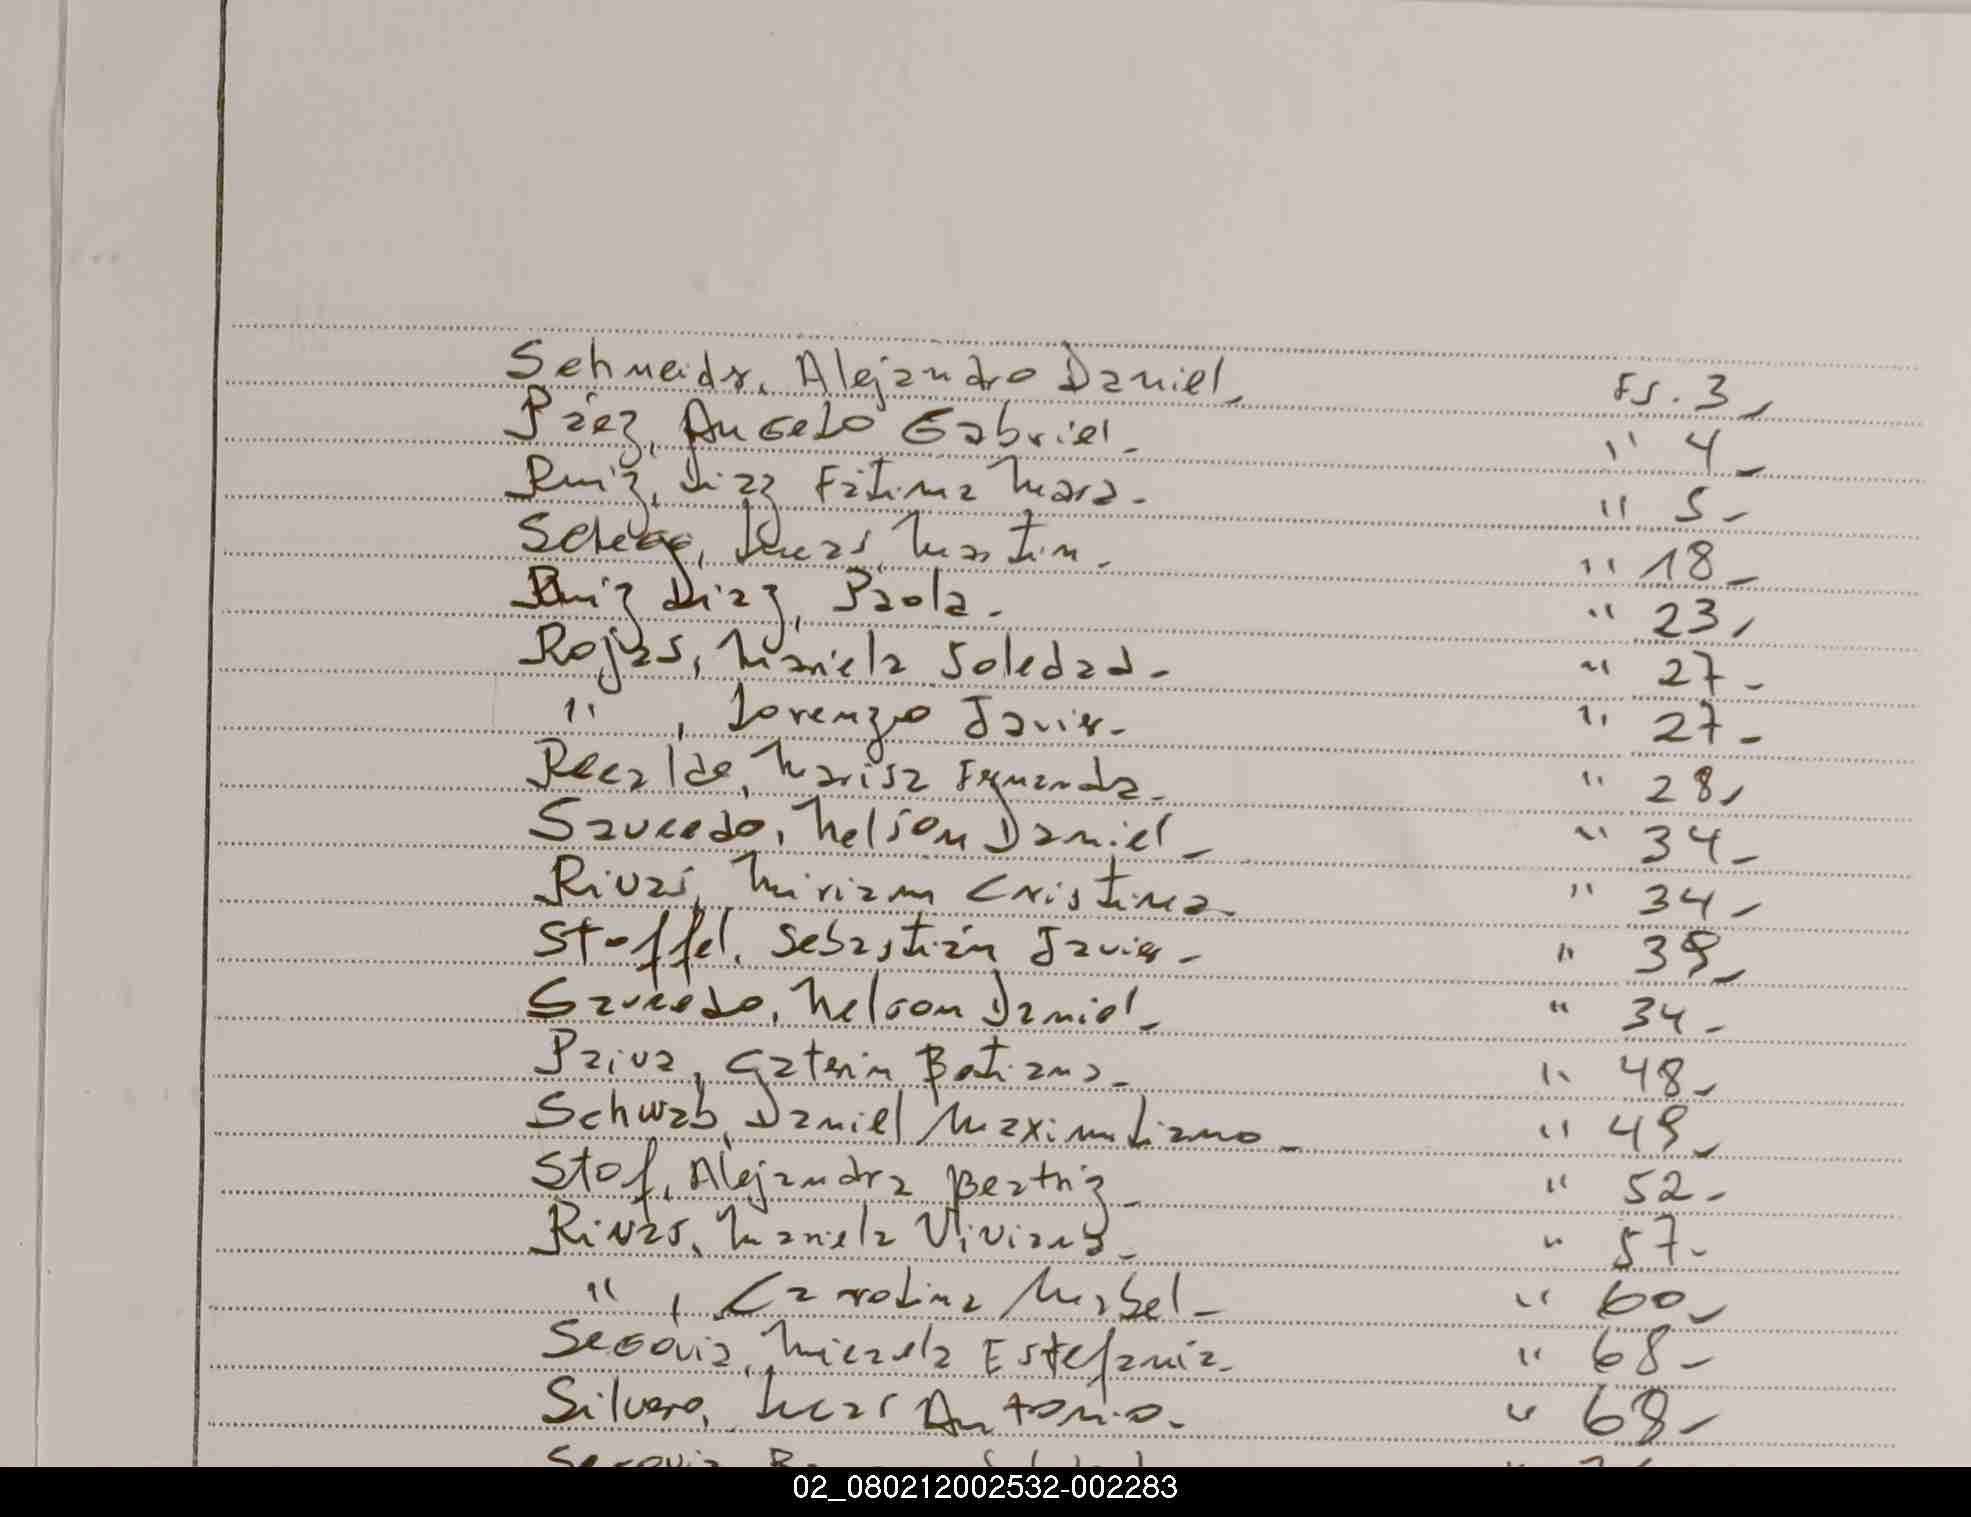 Schneider, Alejandro Daniel. Fs. 3,
Páez, Angelo Gabriel. " 4
Ruiz, Diaz Fátima Mara. " 5
Lucas Martin. " 18
Ruiz Diaz, Paola. " 23,
Rojas, Mariela Soledad. " 27
" , Lorenzo Javier. " 27
Recalde, Marisa Fernanda. " 28,
Saucedo, Nelson Daniel. " 34
Rivas, Miriam Cristina. " 34
Stoffel, Sebastián Javier. " 39
Saucedo, Nelson Daniel. " 34
Paiva, Caterin Betiana. " 48
Schwab, Daniel Maximiliano. " 49
Stof, Alejandra Beatriz. " 52
Rivas, Mariela Viviana. " 57
" , Carolina Mabel. " 60
Segovia, Micaela Estefania. " 68
Silvero, Lucas Antonio. " 69
Segovia
02_080212002532-002283